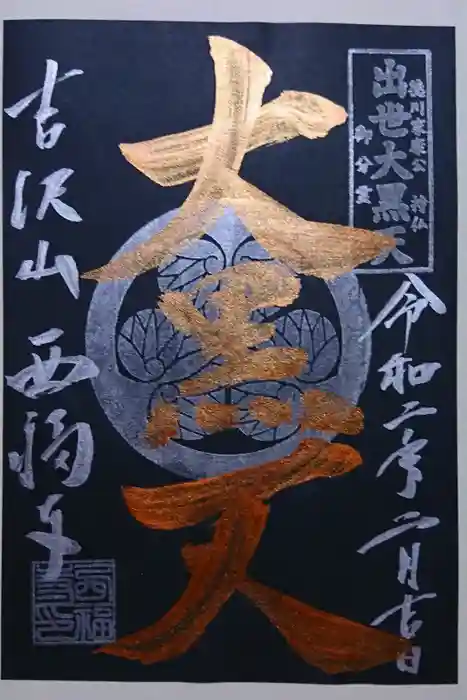 徳川家康公 持仏
出世大黒天
御分霊
令和二年二月吉日
大黒天
吉沢山 西福寺